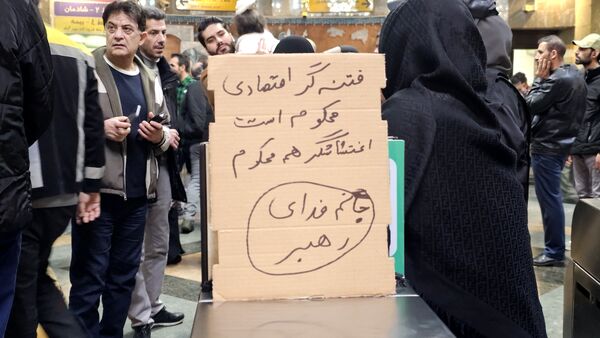 فتنه گر اقتصادی
محکوم است
اغتشاشگر هم محکوم
جانم فدای
رهبر